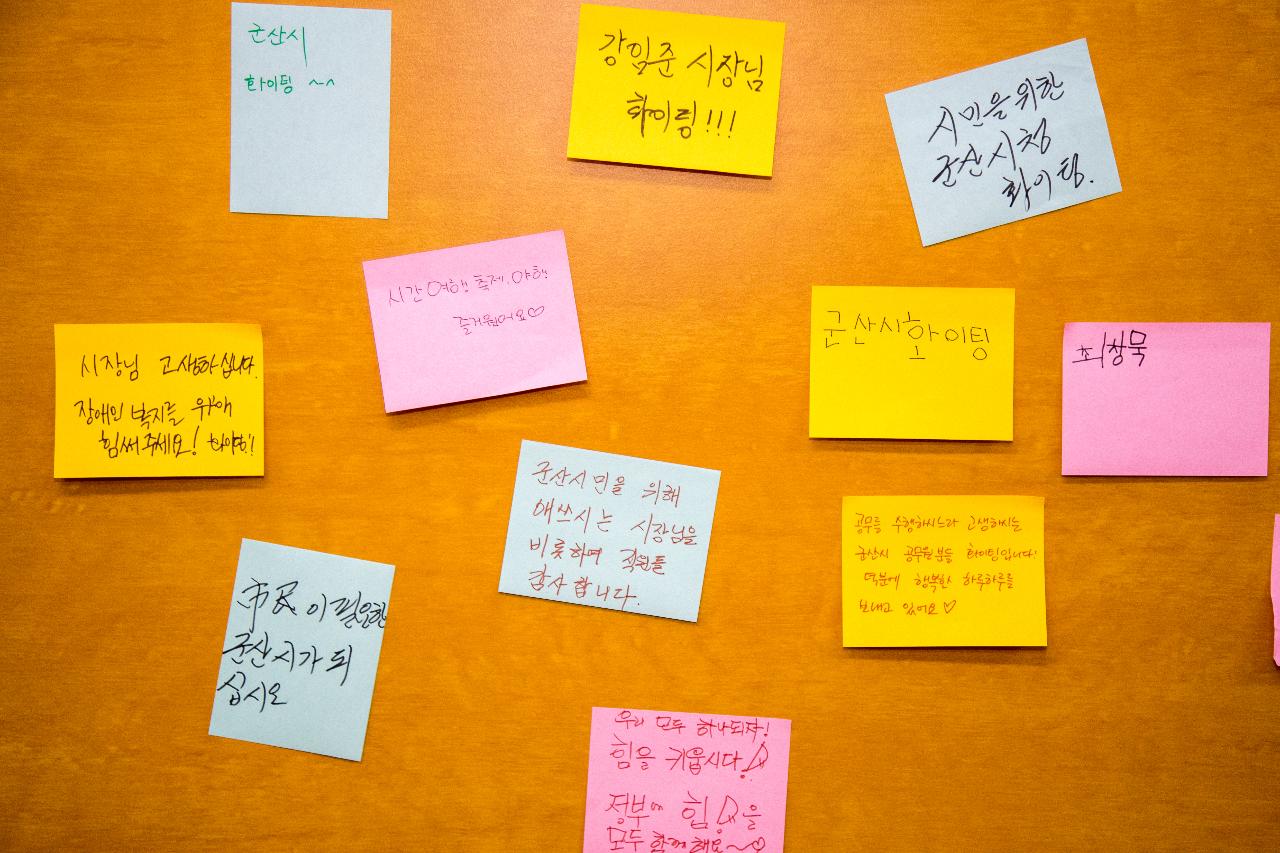 군산시
화이팅 ~^
강임준 시장님
화이팅!!!
시민을 위한
군산시청
화이팅.
시간여행축제, 야행
즐거웠어요♡
군산시화이팅
최창묵
시장님 고생하십니다.
장애인 복지를 위해
힘써주세요! 화이팅!!
군산시민을 위해
애쓰시는 시장님을
비롯하며 직원들
감사합니다.
공무를 수행하시느라 고생하시는
군산시 공무원분들 화이팅입니다!
덕분에 행복한 하루하루를
보내고 있어요♡
市民이 필요한
군산시가 되
십시오
우리 모두 하나되자!
힘을 키웁시다!
정부에 힘을
모두 함께해요~♡